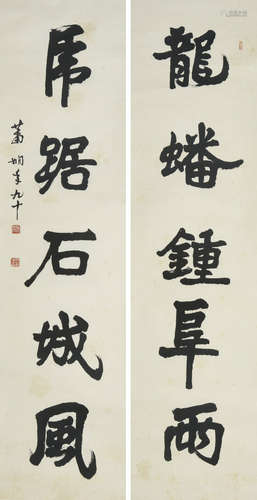 龍蟠鍾阜雨
虎踞石城風
蕭嫻年九十